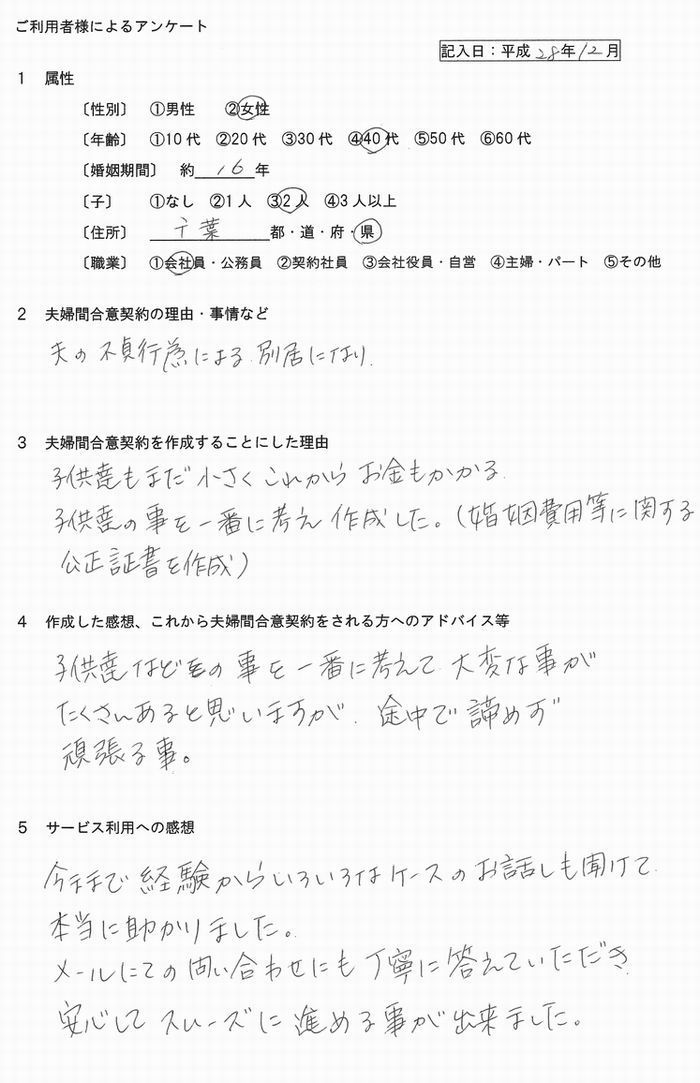 ご利用者様によるアンケート
記入日：平成 28年12月
1 属性
〔性別〕 ①男性 ②女性
〔年齢〕 ①10代 ②20代 ③30代 ④40代 ⑤50代 ⑥60代
〔婚姻期間〕 約 16 年
〔子〕 ①なし ②1人 ③2人 ④3人以上
〔住所〕 千葉 都・道・府・県
〔職業〕 ①会社員・公務員 ②契約社員 ③会社役員・自営 ④主婦・パート ⑤その他
2 夫婦間合意契約の理由・事情など
夫の不貞行為による 別居になり.
3 夫婦間合意契約を作成することにした理由
子供達もまだ小さくこれからお金もかかる.
子供達の事を一番に考え作成した。(婚姻費用等に関する
公正証書を作成)
4 作成した感想、これから夫婦間合意契約をされる方へのアドバイス等
子供達などの事を一番に考えて大変な事が
たくさんあると思いますが、途中で諦めず
頑張る事。
5 サービス利用への感想
今まで経験からいろいろなケースのお話しも聞けて
本当に助かりました。
メールにての問い合わせにも丁寧に答えていただき
安心してスムーズに進める事が出来ました。